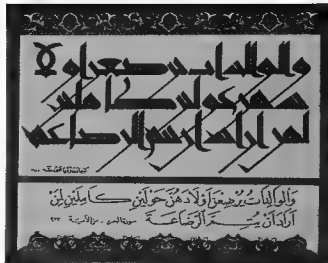 والوالدات يرضعن أولا
دهن حولين كاملين
لمن أراد أن يتم الرضاعة
وَالْوَالِدَاتُ يُرْضِعْنَ أَوْلَادَهُنَّ حَوْلَيْنِ كَامِلَيْنِ لِمَنْ
أَرَادَ أَنْ يُتِمَّ الرَّضَاعَةَ